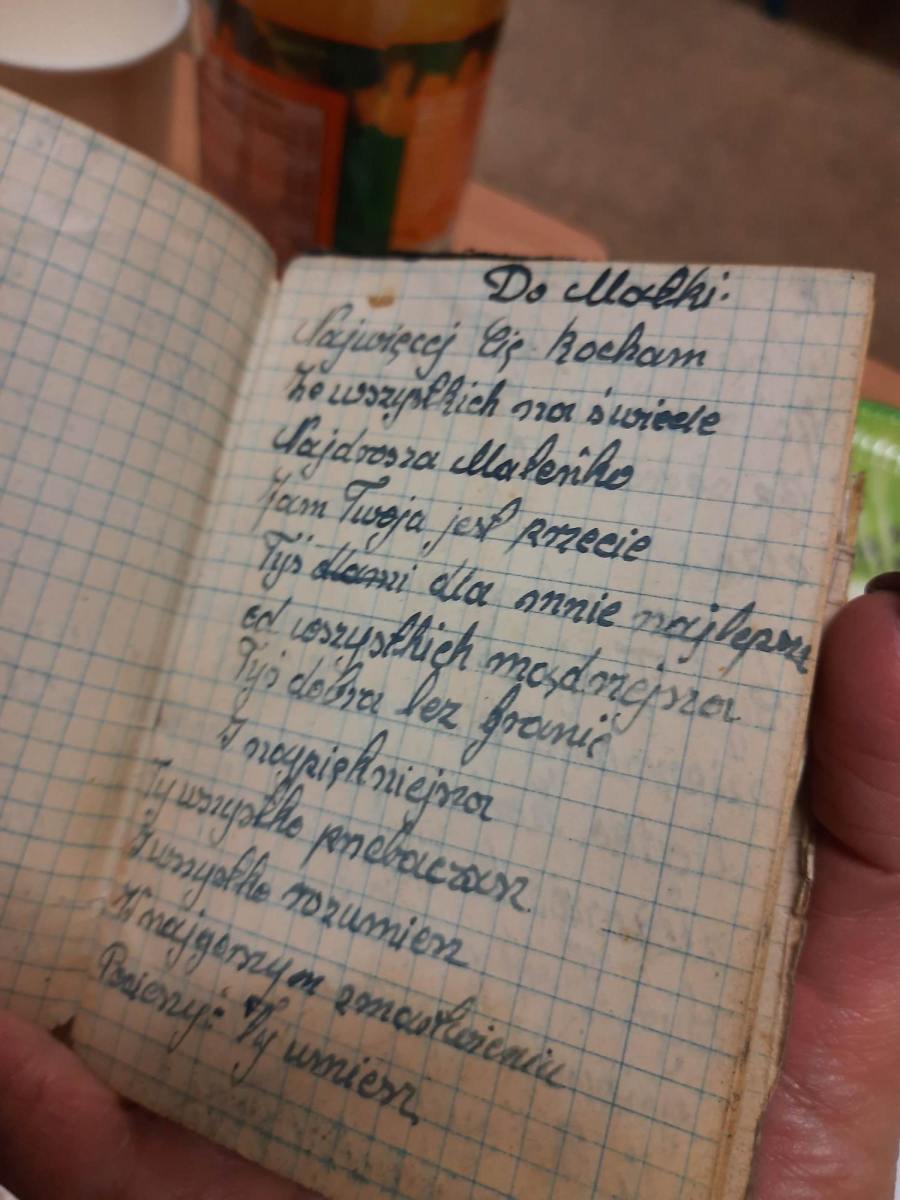 Do Matki.
Najwięcej Cię kocham
Ze wszystkich na świecie
Najdrosza Mateńko
Jam Twoja jest przecie
Tyś dlami dla mnie najlepsza
od wszystkich mądrzejsza
Tyś dobra bez granic
I najpiękniejsza
Ty wszystko przebaczasz
I wszystko rozumiesz
W najgorszym zmartwieniu
Pocieszyć Ty umiesz